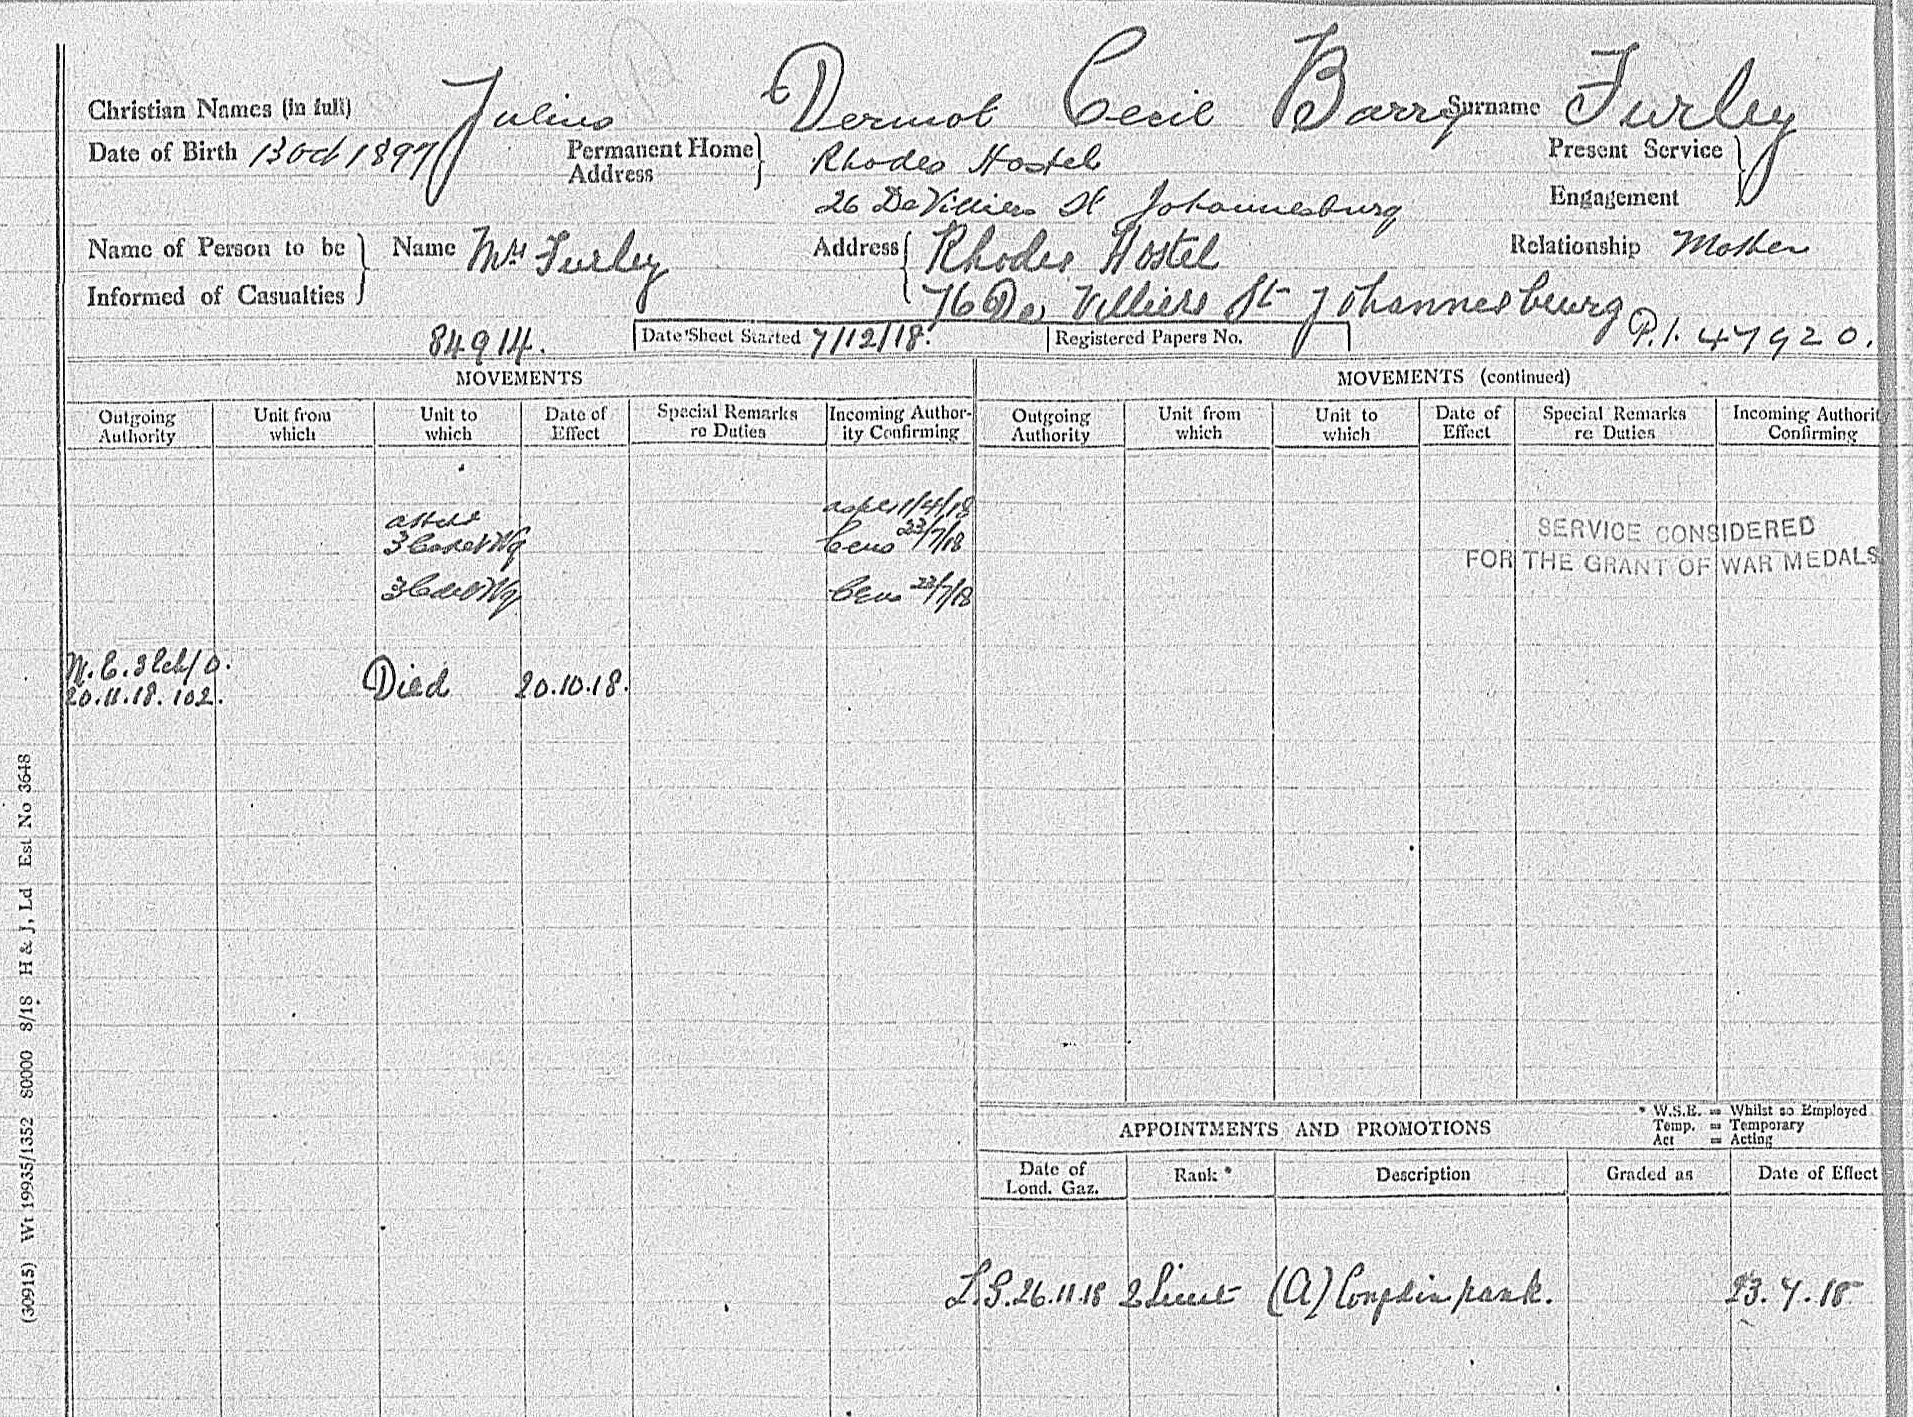 Christian Names (in full) Julius Dermot Cecil Barry Surname Furley
Date of Birth 13 Oct 1897 Permanent Home Address Rhodes Hostel Present Service
26 De Villiers St Johannesburg Engagement
Name of Person to be Informed of Casualties Name Mrs Furley Address Rhodes Hostel Relationship Mother
76 De Villiers St Johannesburg P.I. 47920.
84914. Date Sheet Started 7/12/18. Registered Papers No.
MOVEMENTS
Outgoing Authority Unit from which Unit to which Date of Effect Special Remarks re Duties Incoming Author-ity Confirming
1/4/18
3 Cadet Wg 23/7/18
3 Cadet Wg 23/7/18
20.11.18. 102. Died 20.10.18.
MOVEMENTS (continued)
Outgoing Authority Unit from which Unit to which Date of Effect Special Remarks re Duties Incoming Authority Confirming
SERVICE CONSIDERED
FOR THE GRANT OF WAR MEDALS
APPOINTMENTS AND PROMOTIONS
* W.S.E. = Whilst so Employed
Temp. = Temporary
Act = Acting
Date of Lond. Gaz. Rank * Description Graded as Date of Effect
L.G. 26.11.18 2 Lieut (A) 23.7.18
(30915) Wt 19935/1352 80000 8/18 H & J, Ld Est No 3648